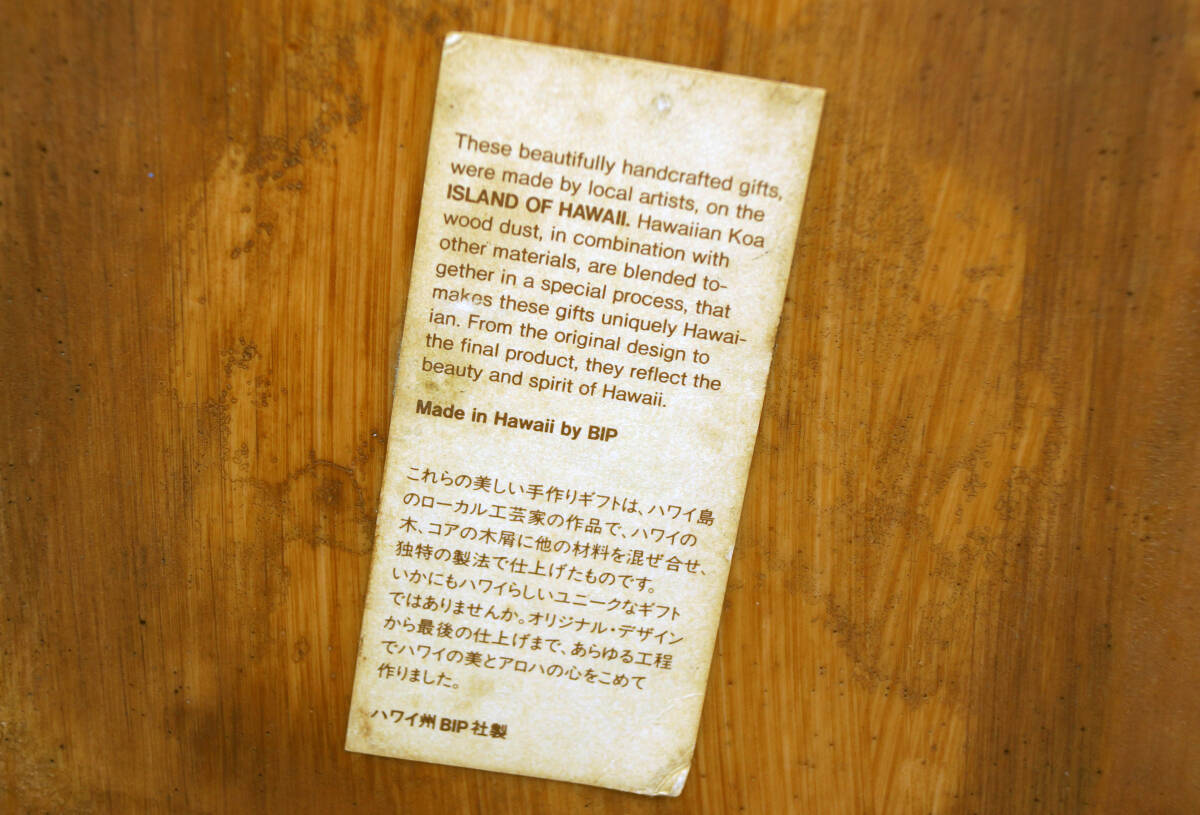 These beautifully handcrafted gifts,
were made by local artists, on the
ISLAND OF HAWAII. Hawaiian Koa
wood dust, in combination with
other materials, are blended to-
gether in a special process, that
makes these gifts uniquely Hawai-
ian. From the original design to
the final product, they reflect the
beauty and spirit of Hawaii.
Made in Hawaii by BIP
これらの美しい手作りギフトは、ハワイ島
のローカル工芸家の作品で、ハワイの
木、コアの木屑に他の材料を混ぜ合せ、
独特の製法で仕上げたものです。
いかにもハワイらしいユニークなギフト
ではありませんか。オリジナル・デザイン
から最後の仕上げまで、あらゆる工程
でハワイの美とアロハの心をこめて
作りました。
ハワイ州BIP社製